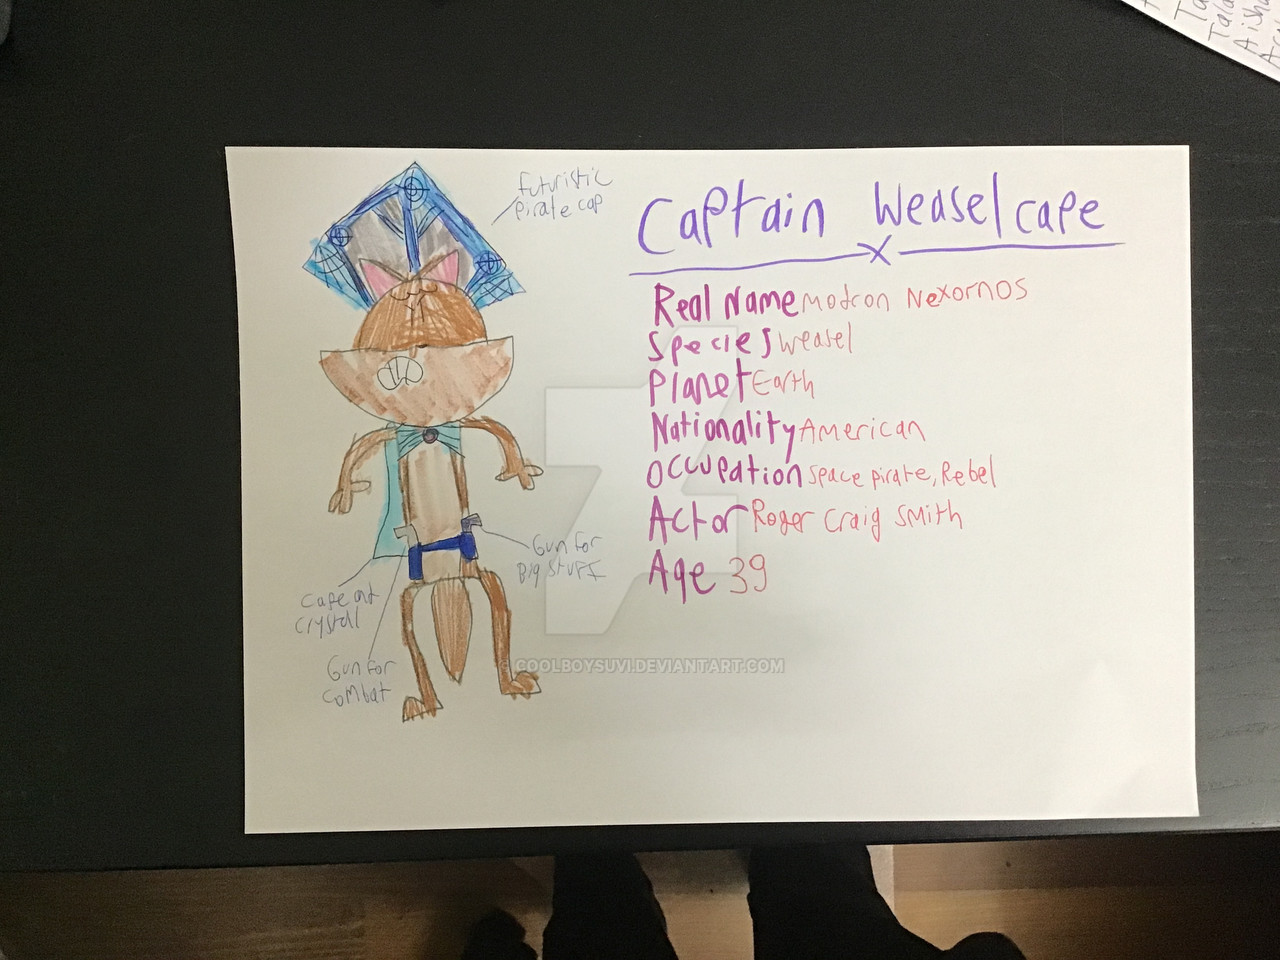 Captain Weaselcape
Real Name Modron Nexornos
Species Weasel
Planet Earth
Nationality American
Occupation Space pirate, Rebel
Actor Roger Craig Smith
Age 39
Futuristic
pirate cap
Gun for
Big stuff
Cape
crystal
Gun for
combat
COOLBOYSUVI.DEVIANTART.COM
Tala
Aisha